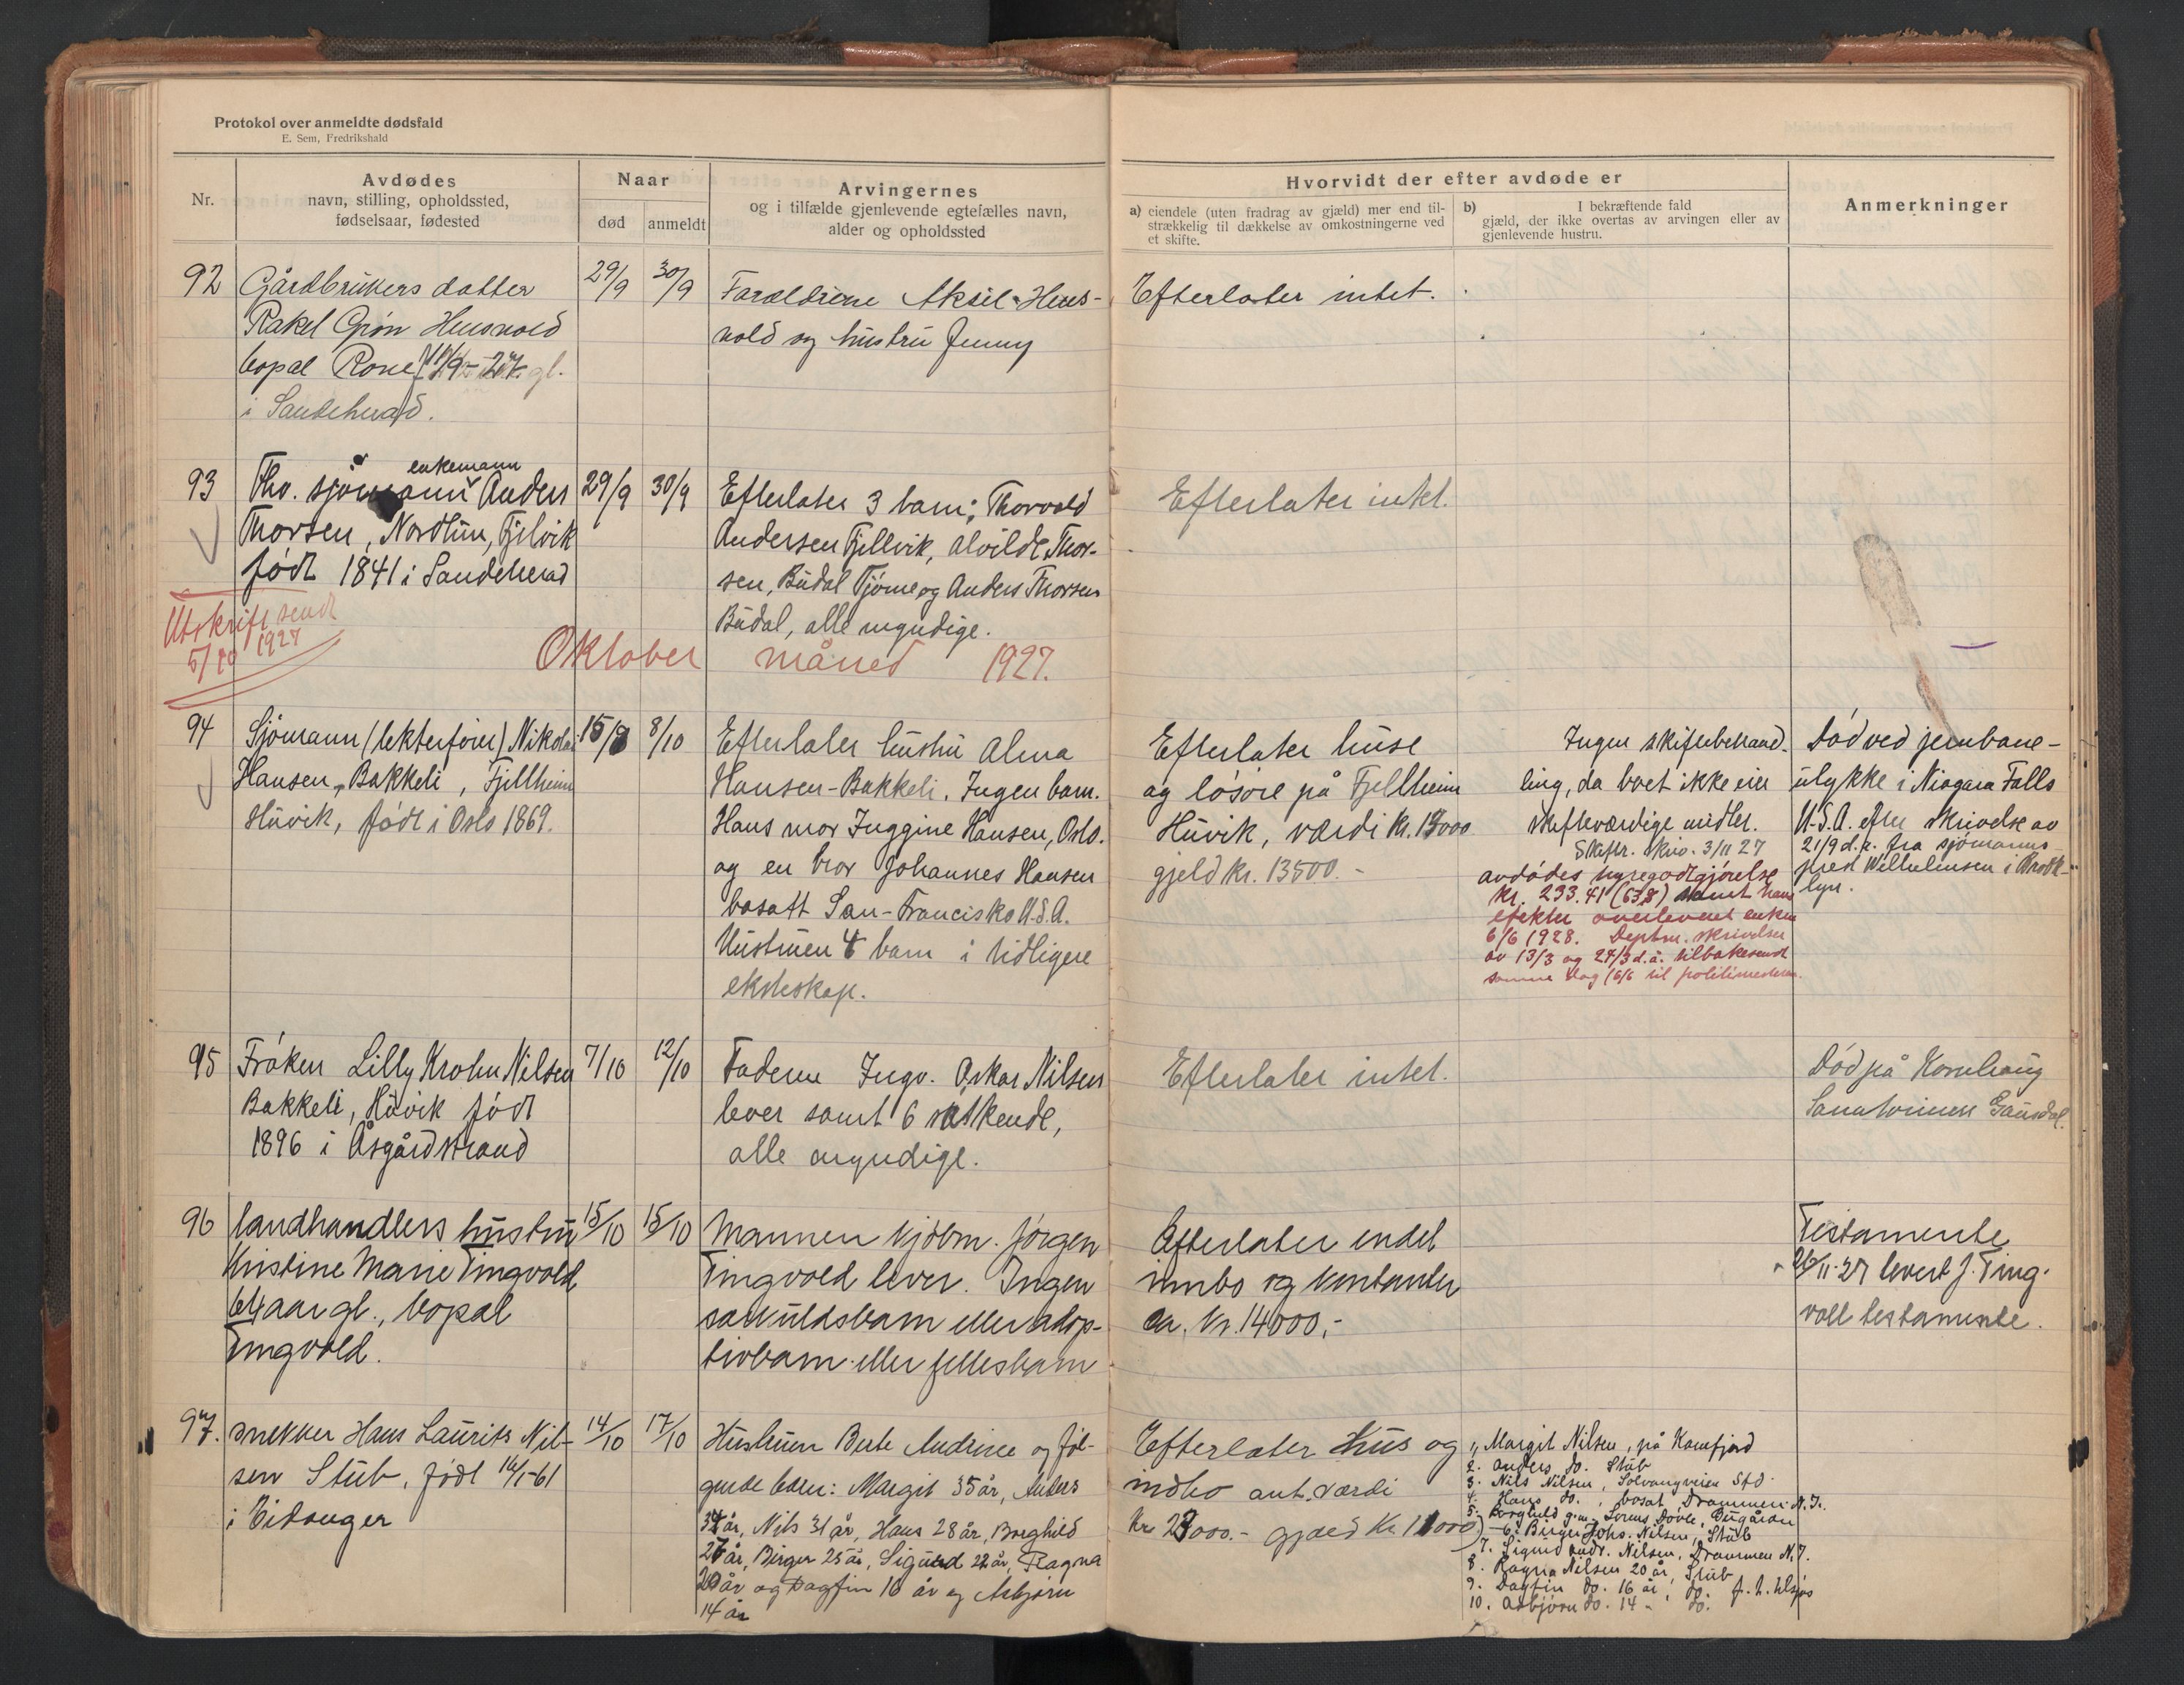 Protokol over anmeldte dødsfald
E. Sem, Fredrikshald
Nr.
Avdødes
navn, stilling, opholdssted,
fødselsaar, fødested
Naar
død
anmeldt
Arvingernes
og i tilfælde gjenlevende egtefælles navn,
alder og opholdssted
Hvorvidt der efter avdøde er
a) eiendele (uten fradrag av gjæld) mer end til-
strækkelig til dækkelse av omkostningerne ved
et skifte.
b) I bekræftende fald
gjæld, der ikke overtas av arvingen eller av
gjenlevende hustru.
Anmerkninger
92
Gårdbrukers datter
Rakel Grøn
bopal
i Sandeherad.
29/9
30/9
Forældrene Aksel Hus-
vold og hustru Jenny
Efterlater intet.
93
enkemann
Fhv. sjømann Anders
Thorsen, Nordlun, Fjelvik
født 1841 i Sandeherad
29/9
30/9
Efterlater 3 barn; Thorvald
Andersen Fjellvik, Alvilde Thor-
sen, Budal Tjøme og Anders Thorsen
Budal, alle myndige.
Efterlater intet.
Utskrift sendt
5/10 1927
Oktober måned 1927.
94
Sjømann (lekterfører) Nikolai
Hansen, Bakkeli, Fjellheim
Huvik, født i Oslo 1869.
15/9
8/10
Efterlater hustru Alma
Hansen-Bakkeli. Ingen barn.
Hans mor Inggine Hansen, Oslo.
og en bror Johannes Hansen
bosatt San-Francisko U.S.A.
Hustruen 4 barn i tidligere
ekteskap.
Efterlater huse
og løsøre på Fjellheim
Huvik, værdi kr. 13000
gjeld kr. 13500.-
Ingen skiftebehand-
ling, da boet ikke eier
skifteværdige midler.
Skiftr. skriv. 3/11 27
avdødes hyregodtgjørelse
kr. 233.41 (63 $) samt hans
efekter overleveret enken
6/6 1928. Deptm. skrivelser
av 13/3 og 27/3 d.å. tilbakesendt
samme dag (6/6 til politimesteren.
Død ved jernbane-
ulykke i Niagara Falls
U.S.A. efter skrivelse av
21/9 d.å. fra sjømanns-
prest Wilhelmsen i Brook-
lyn.
95
Frøken Lilly Krohn Nilsen
Bakkeli, Huvik født
1896 i Åsgårdstrand
7/10
12/10
Faderen Ingv. Oskar Nilsen
lever samt 6 søskende,
alle myndige.
Efterlater intet.
Død på Kornhaug
Sanatorium Gausdal.
96
landhandlers hustru
Kristine Marie Tingvold
64 aar gl., bopal
Tingvold.
15/10
15/10
Mannen kjøbm. Jørgen
Tingvold lever. Ingen
særkuldsbarn eller adop-
tivbarn eller fellesbarn
Efterlater endel
innbo og kontanter
ca. kr. 14000,-
Testamente
26/11-27 levert J. Ting-
voll testamente.
97.
snekker Hans Laurits Nil-
sen Stub, født 16/1-61
i Eidanger
14/10
17/10
Hustruen Berte Andrine og føl-
gende børn: Margit 35 år, Anders
34 år, Nils 31 år, Hans 28 år, Borghild
27 år, Birger 25 år, Sigurd 22 år, Ragna
20 år og Dagfin 16 år og Asbjørn
14 år
Efterlater hus og
indbo ant. værdi
kr 23000.- gjæld kr 11000
1, Margit Nilsen, på Kamfjord
2. Anders do. Stub
3. Nils Nilsen, Solvangveien Sfd
4. Hans do. , bosat Drammen N.Jr.
5. Borghild g.m.
6. Birger Johs. Nilsen, Stub
7. Sigurd Andr. Nilsen, Drammen N.J.
8. Ragna Nilsen 20 år, Stub
9. Dagfin do. 16 år, do.
10. Asbjørn do. 14 - do.